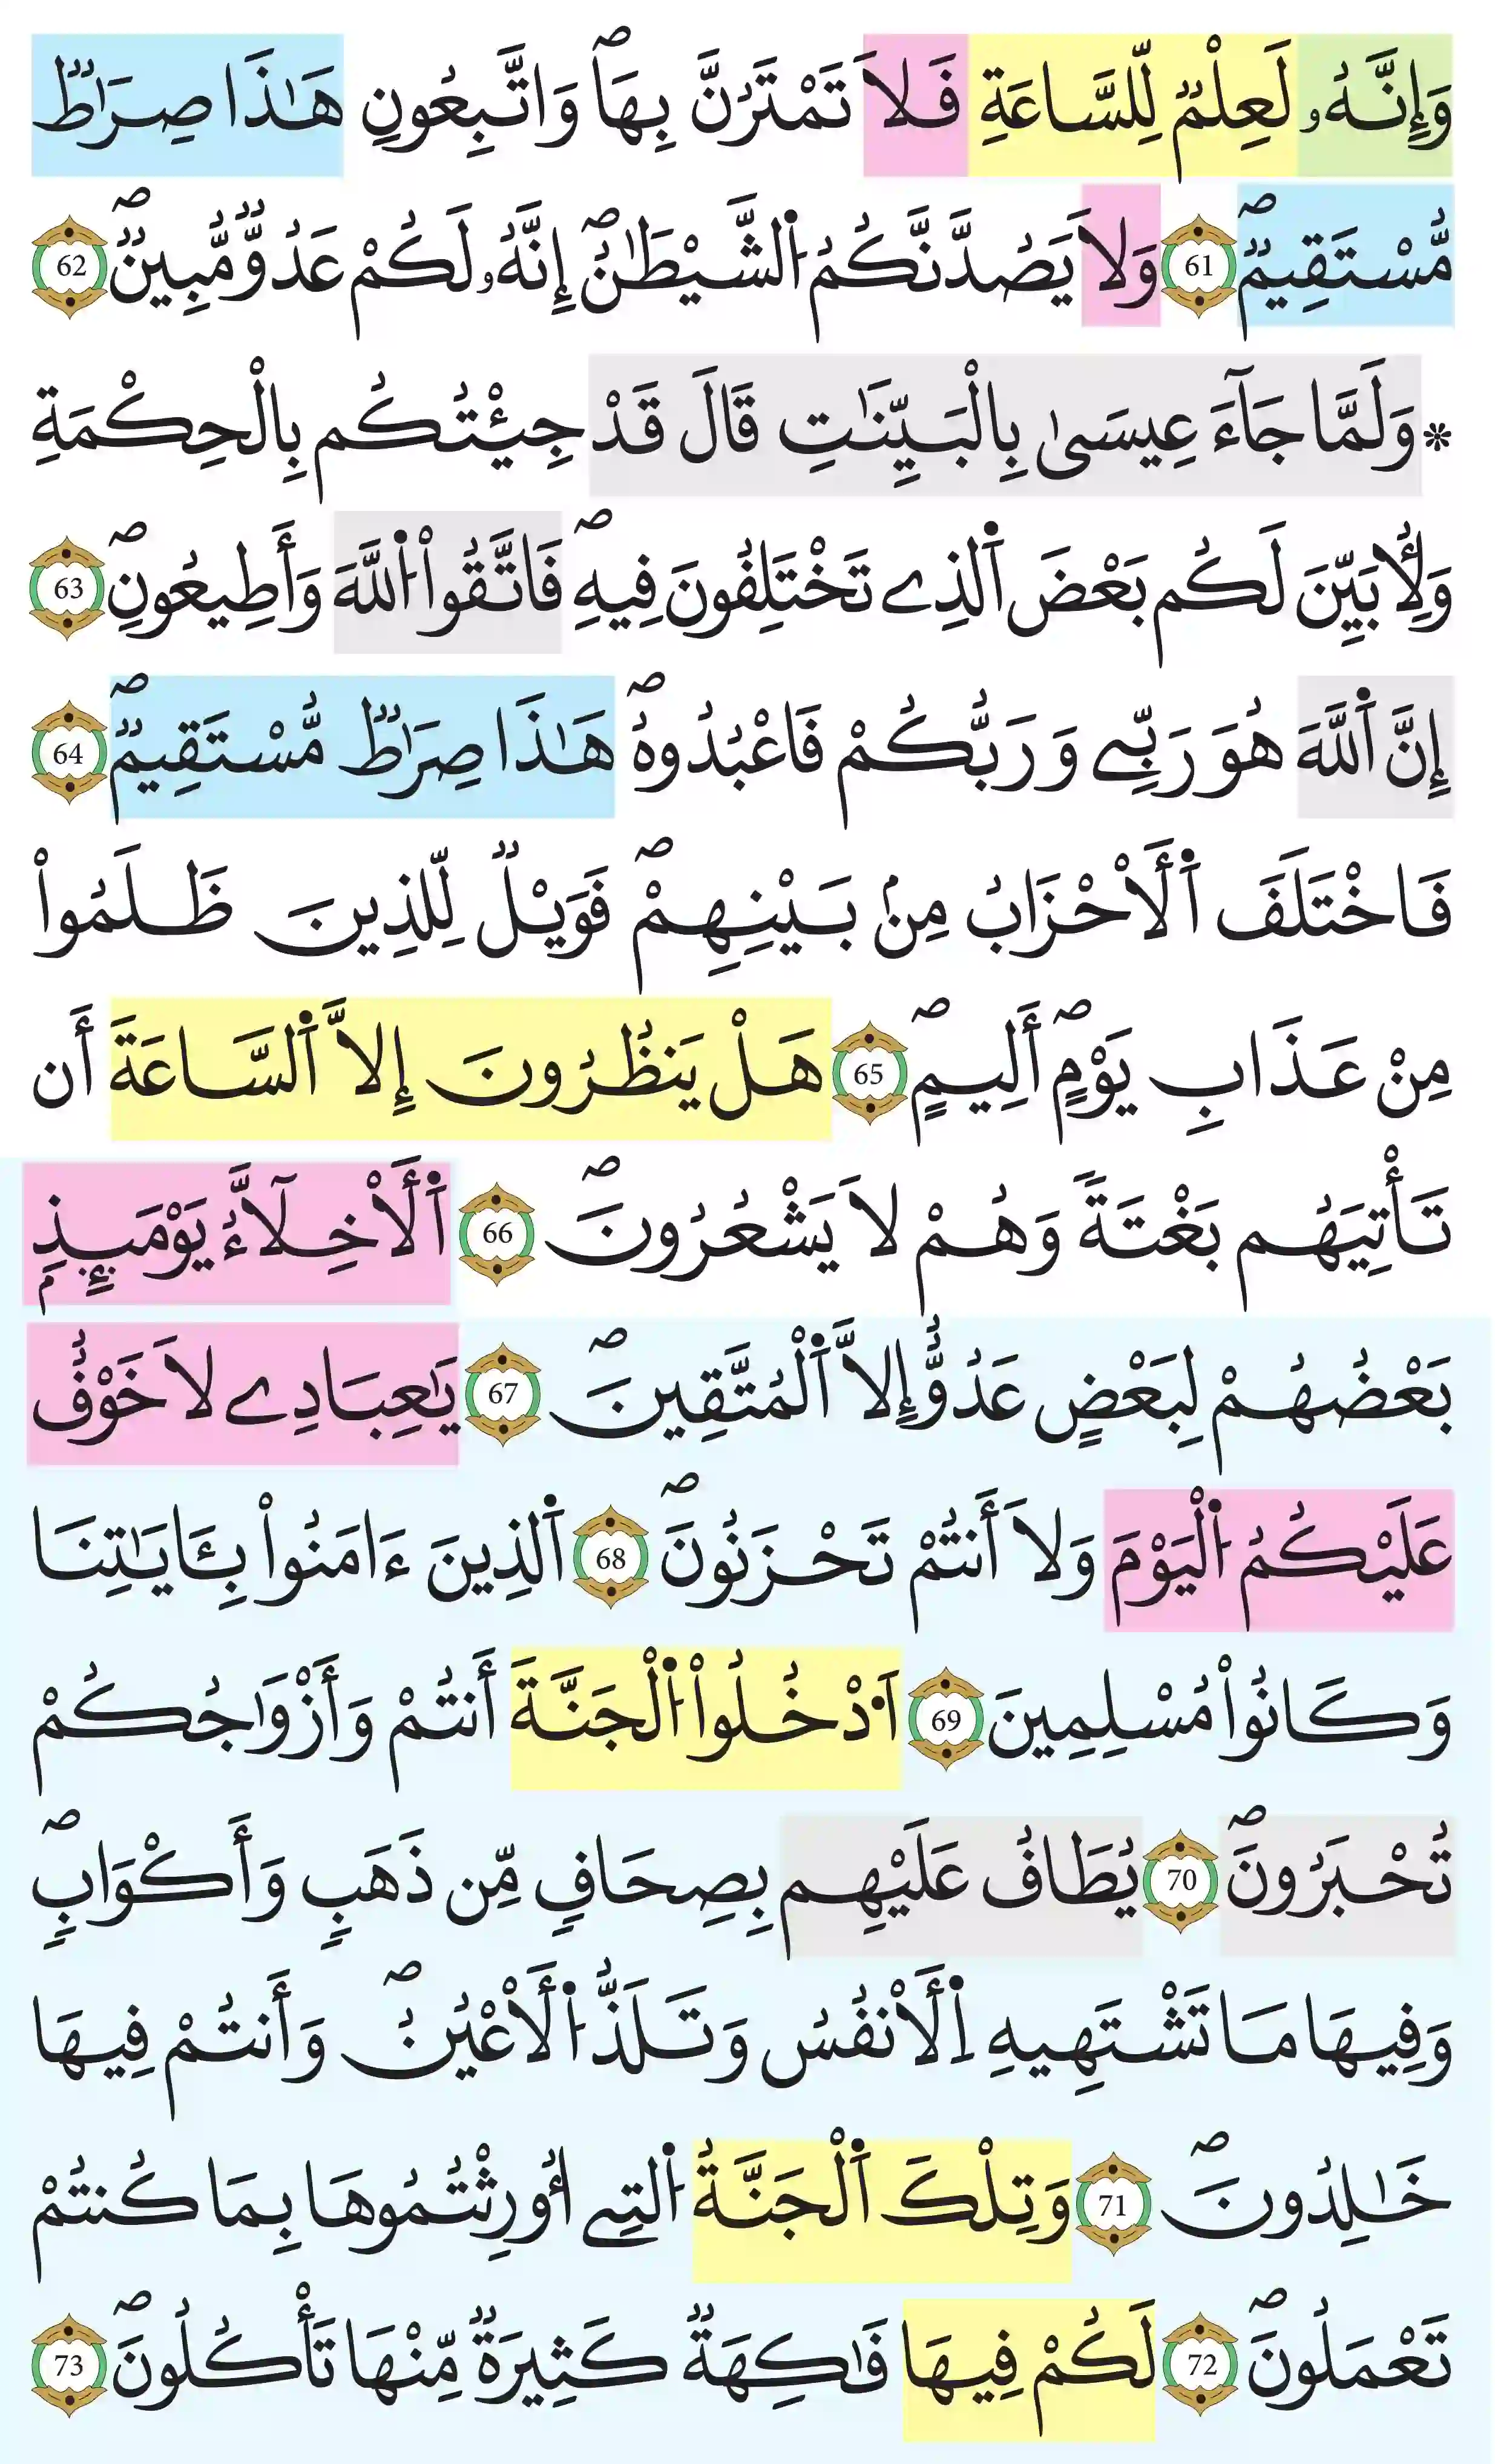 وَإِنَّهُۥ لَعِلْمٞ لِّلسَّاعَةِ فَلَا تَمْتَرُنَّ بِهَا وَاتَّبِعُونِۖ هَٰذَا صِرَٰطٞ
مُّسْتَقِيمٞۖ 61 وَلَا يَصُدَّنَّكُمُ اُ۬لشَّيْطَٰنُۖ إِنَّهُۥ لَكُمْ عَدُوّٞ مُّبِينٞۖ 62
* وَلَمَّا جَآءَ عِيسَىٰ بِالْبَيِّنَٰتِ قَالَ قَدْ جِئْتُكُم بِالْحِكْمَةِ
وَلِأُبَيِّنَ لَكُم بَعْضَ اَ۬لذِے تَخْتَلِفُونَ فِيهِۖ فَاتَّقُوا۟ اُ۬للَّهَ وَأَطِيعُونِۖ 63
إِنَّ اَ۬للَّهَ هُوَ رَبِّے وَرَبُّكُمْ فَاعْبُدُوهُۖ هَٰذَا صِرَٰطٞ مُّسْتَقِيمٞۖ 64
فَاخْتَلَفَ اَ۬لْأَحْزَابُ مِنۢ بَيْنِهِمْۖ فَوَيْلٞ لِّلذِينَ ظَلَمُوا۟
مِنْ عَذَابِ يَوْمٍ أَلِيمٍۖ 65 هَلْ يَنظُرُونَ إِلَّا اَ۬لسَّاعَةَ أَن
تَأْتِيَهُم بَغْتَةٗ وَهُمْ لَا يَشْعُرُونَۖ 66 اَ۬لْأَخِلَّآءُ يَوْمَئِذِۢ
بَعْضُهُمْ لِبَعْضٍ عَدُوٌّ إِلَّا اَ۬لْمُتَّقِينَۖ 67 يَٰعِبَادِے لَا خَوْفٌ
عَلَيْكُمُ اُ۬لْيَوْمَ وَلَا أَنتُمْ تَحْزَنُونَۖ 68 اَ۬لذِينَ ءَامَنُوا۟ بِـَٔايَٰتِنَا
وَكَانُوا۟ مُسْلِمِينَ 69 اَ۟دْخُلُوا۟ اُ۬لْجَنَّةَ أَنتُمْ وَأَزْوَٰجُكُمْ
تُحْبَرُونَۖ 70 يُطَافُ عَلَيْهِم بِصِحَافٍ مِّن ذَهَبٍ وَأَكْوَابٍۖ
وَفِيهَا مَا تَشْتَهِيهِ اِ۬لْأَنفُسُ وَتَلَذُّ اُ۬لْأَعْيُنُۖ وَأَنتُمْ فِيهَا
خَٰلِدُونَۖ 71 وَتِلْكَ اَ۬لْجَنَّةُ اُ۬لتِے أُورِثْتُمُوهَا بِمَا كُنتُمْ
تَعْمَلُونَۖ 72 لَكُمْ فِيهَا فَٰكِهَةٞ كَثِيرَةٞ مِّنْهَا تَأْكُلُونَۖ 73